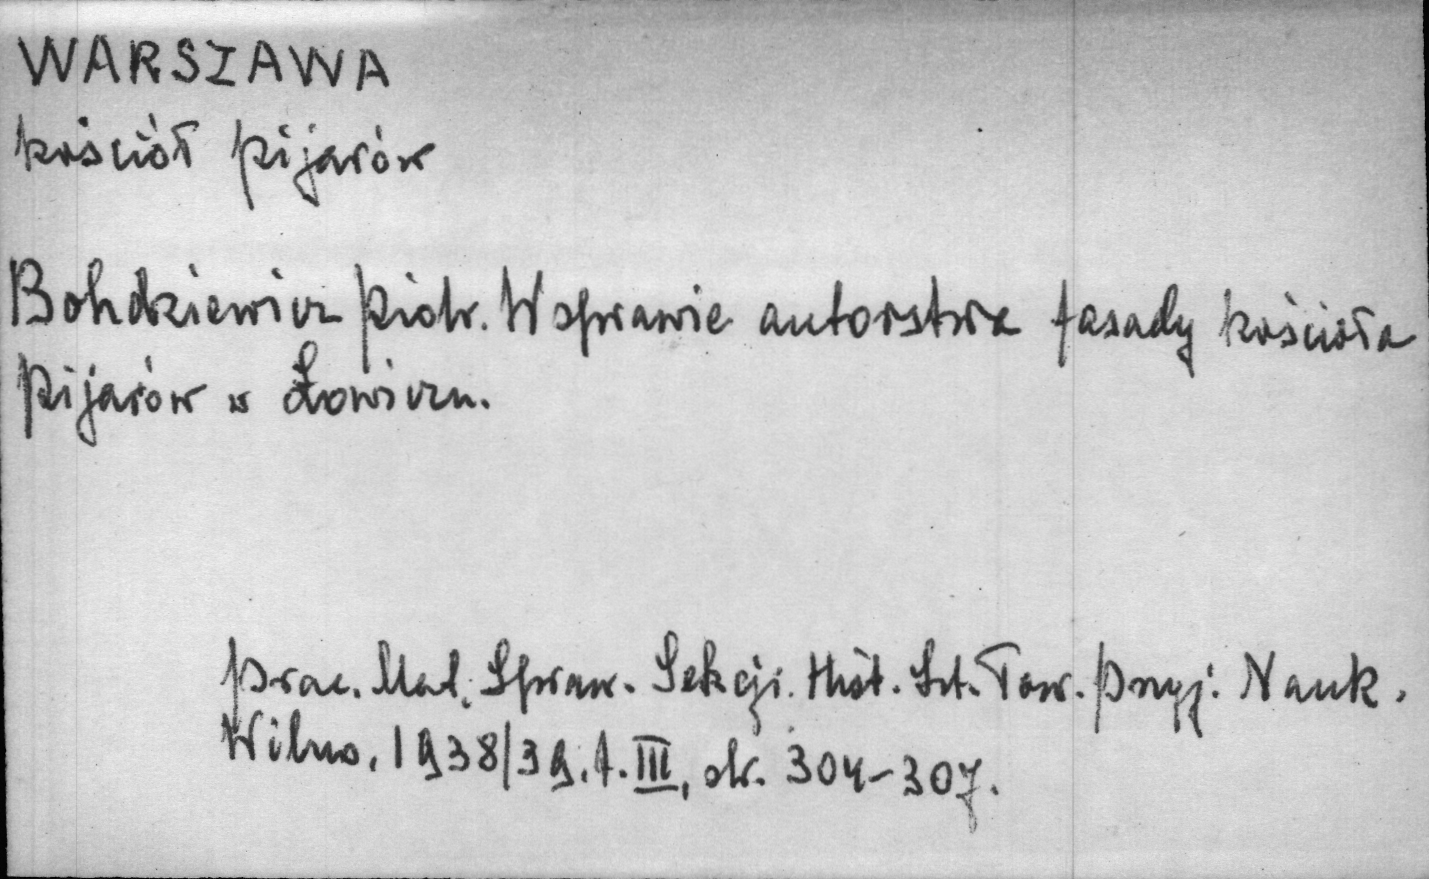 WARSZAWA
kościół pijarów
Bohdziewicz Piotr. W sprawie autorstwa fasady kościoła
Pijarów w Łowiczu.
Prac. Mat. Spraw. Sekcji. Hist. Szt. Tow. Przyj. Nauk.
Wilno, 1938/39. t. III, str. 304-307.